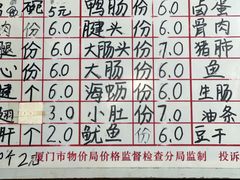 碗 5元 鸭肠 份 6.0 卤
肉 份 6.0 腱头 份 6.0 骨肉
腿 份 6.0 大肠头 份 7.0 猪肺
心 份 6.0 大肠 份 6.0 鱼
健 个 6.0 海蛎 份 6.0 生肠
翅 3.0 小肚 份 7.0 油条
肝 个 2.0 鱿鱼 份 6.0 豆干
042元 厦门市物价局价格监督检查分局监制 投诉